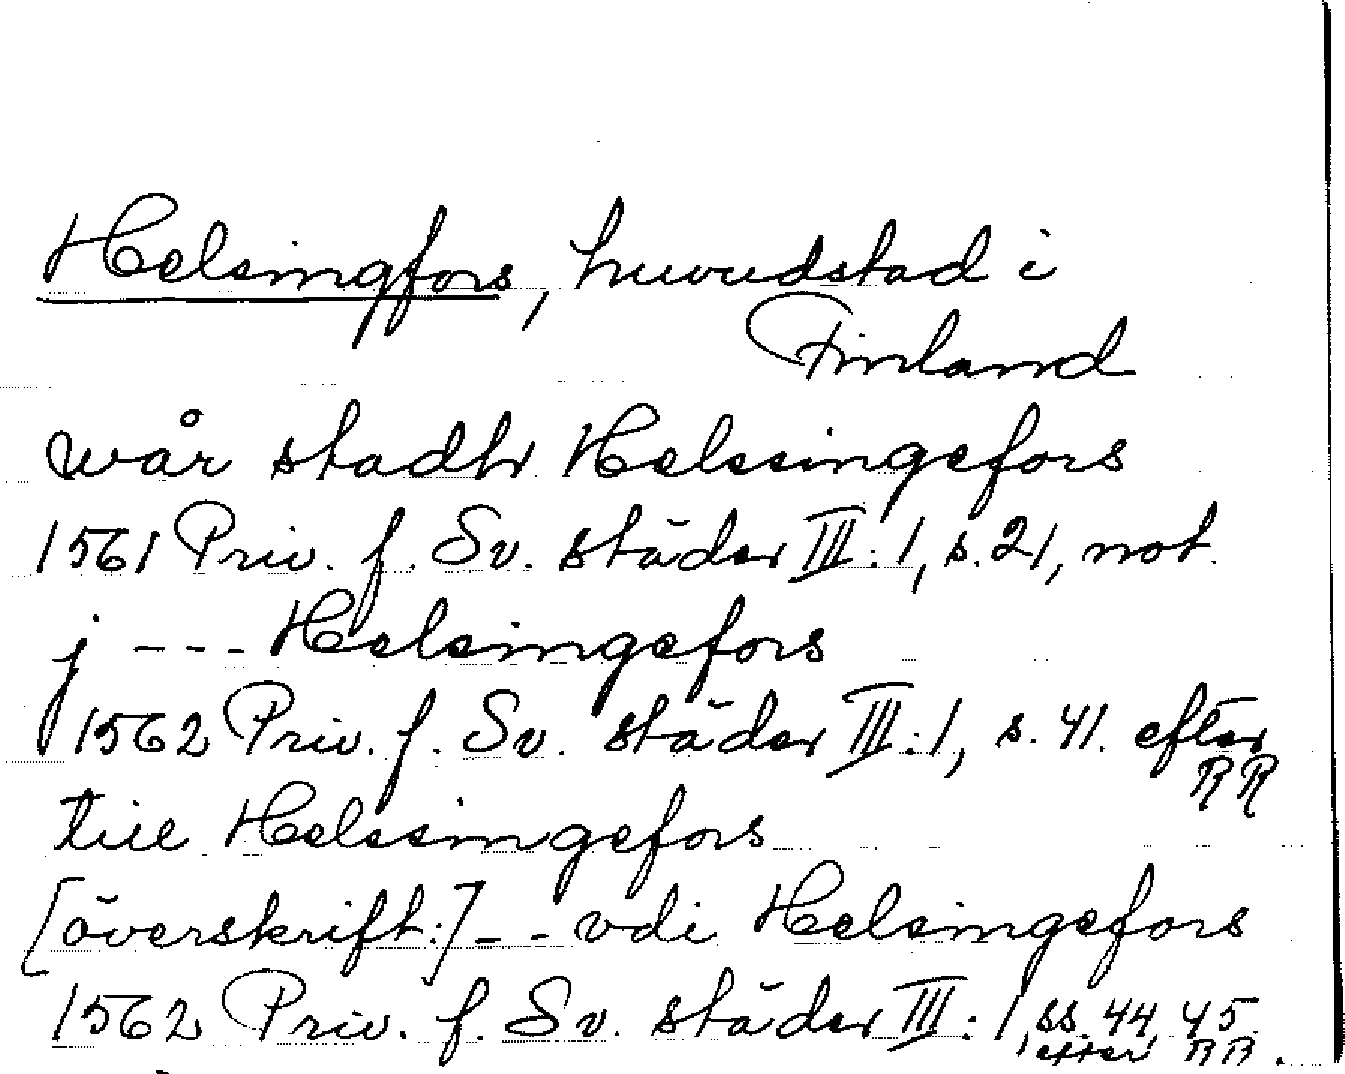 Helsingfors, huvudstad i
Finland
wår stadh Helssingefors
1561 Priv. f. Sv. städer III:1, s. 21, not.
j --- Helsingefors
1562 Priv. f. Sv. städer III:1, s. 41. efter
RR
till Helssingefors
[överskrift:] -- vdi Helsingefors
1562 Priv. f. Sv. städer III:1, ss. 44 45.
efter RR.